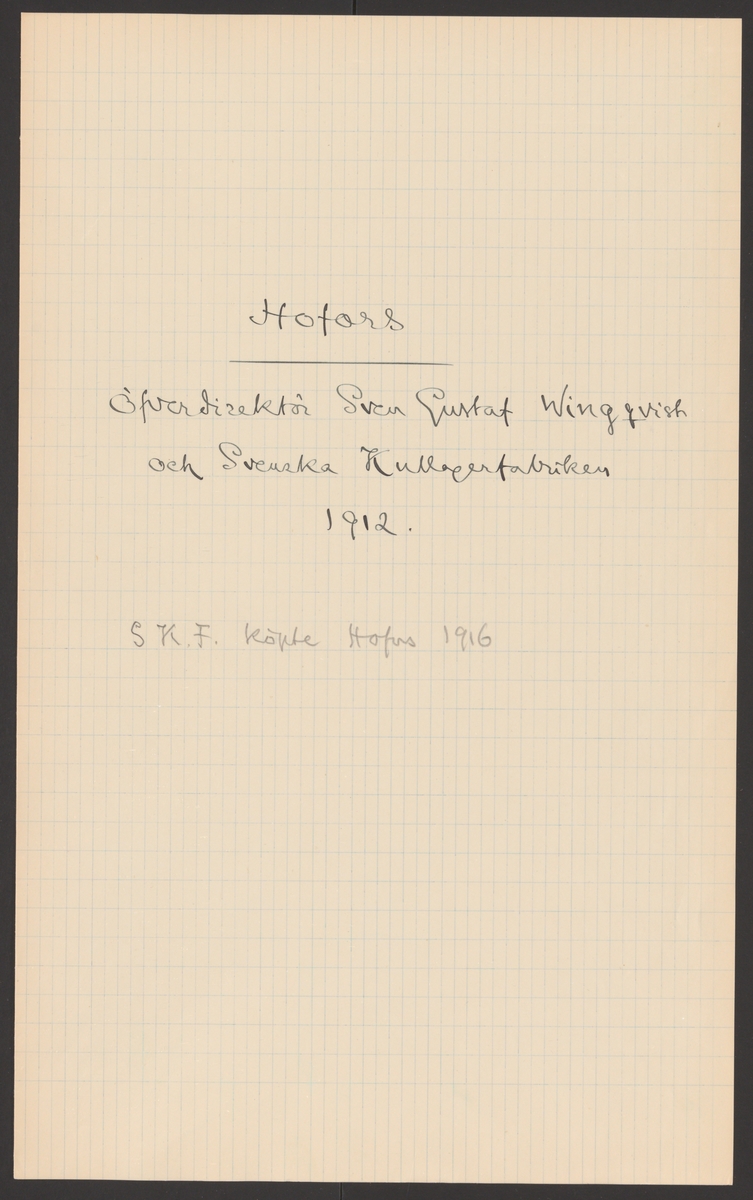 Hofors
Öfverdirektör Sven Gustaf Wingqvist
och Svenska Kullagerfabriken
1912.
S K. F. köpte Hofors 1916